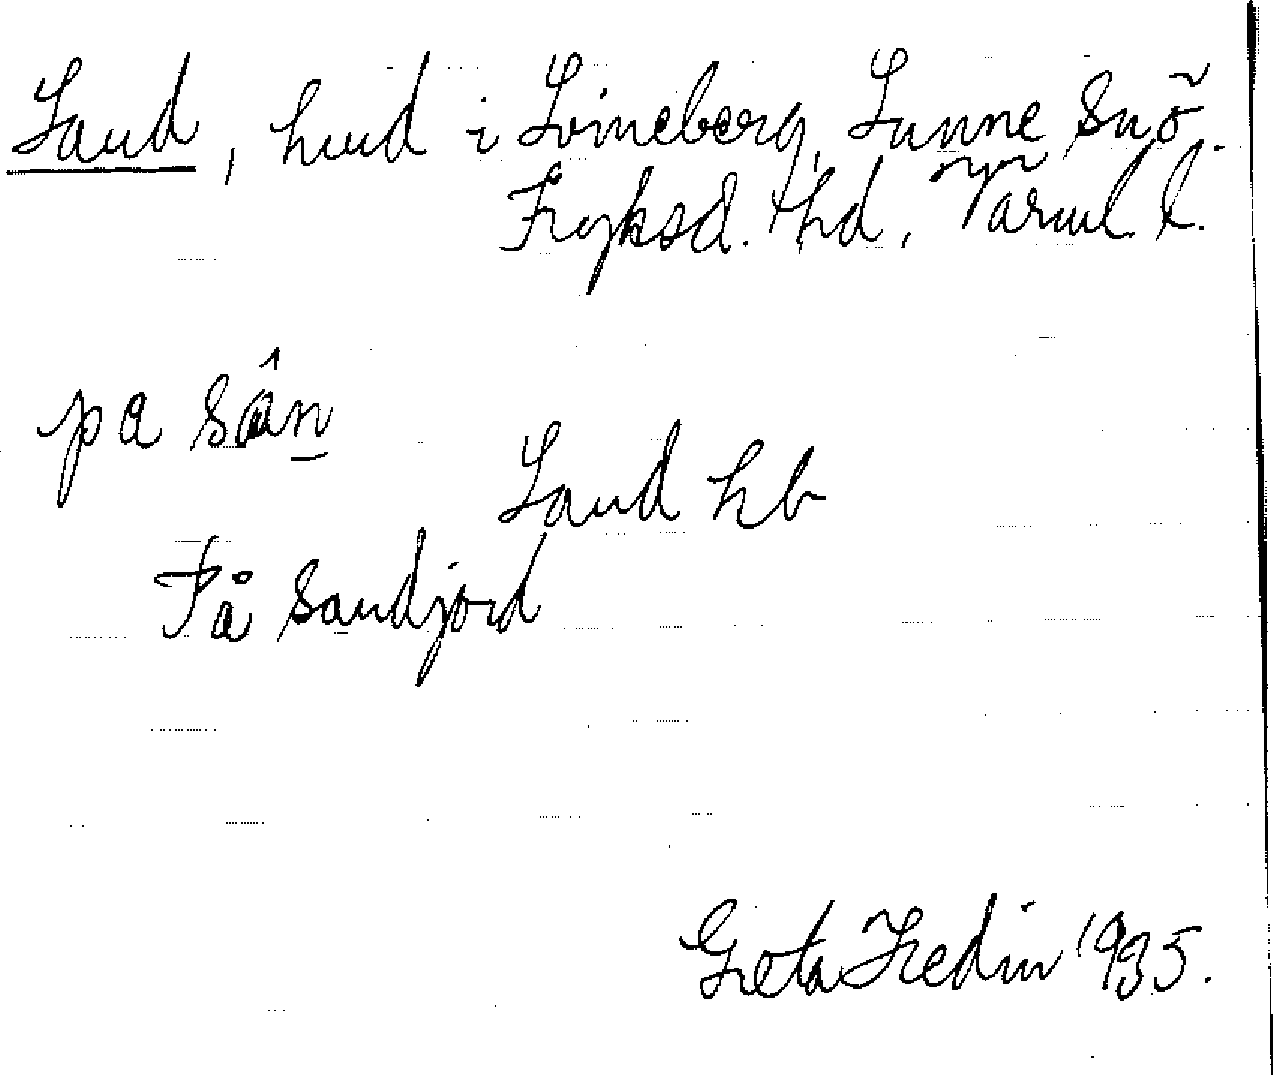 Sand, hmd i Svineberg, Sunne snö.
Fryksd. hd, Värml. l.
pa sân
Sand hb
På sandjord
Greta Hedin 1935.